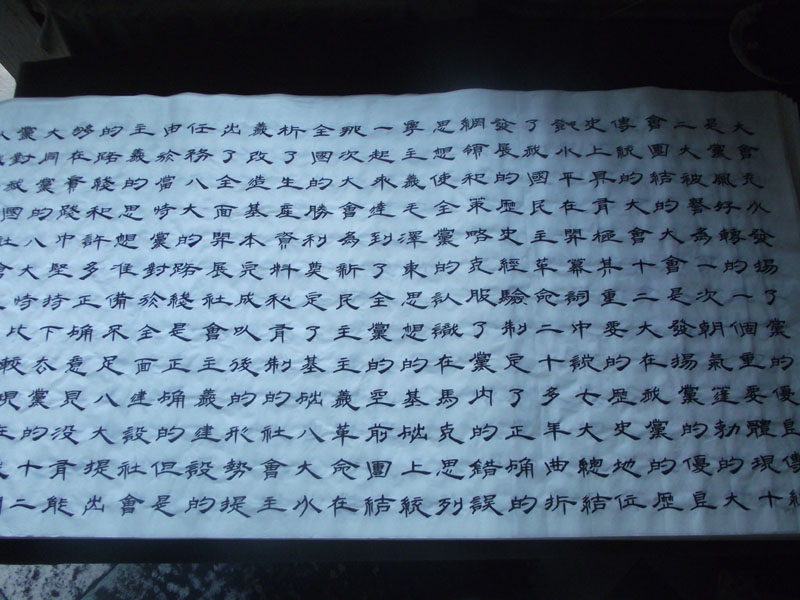 大會充分發揚了黨的優良傳統
是黨風好轉的一個重要體現十
二大被譽為一次朝氣蓬勃的大
會團結的大會是發揚黨的優良
傳統的大會十二大在黨的歷
史上具有極其重要的歷史地位
的水平在開幕詞中說我黨總結
了我國民主革命二十多年曲折
發展的歷史經驗制定了正确的
綱領和策略克服了黨内的錯誤
思想使全黨的認識在馬克思列
寧主義毛澤東思想的基础上統
一起來達到了全黨的空前團結
這次大會為新民主主義革命在
全國的勝利奠定了基础八大分
析了生產資料私有制的社會主
義改造基本完成以後的形勢提
出了全面開展社會主義建設的
任務八大的路綫是正确的但是
由於當時黨對於全面建設社會
主義的思想准備不足八大提出
的路綫和許多正确意見没有能
够在實踐中堅持下去黨的十二
大同黨的八大時比較現在我